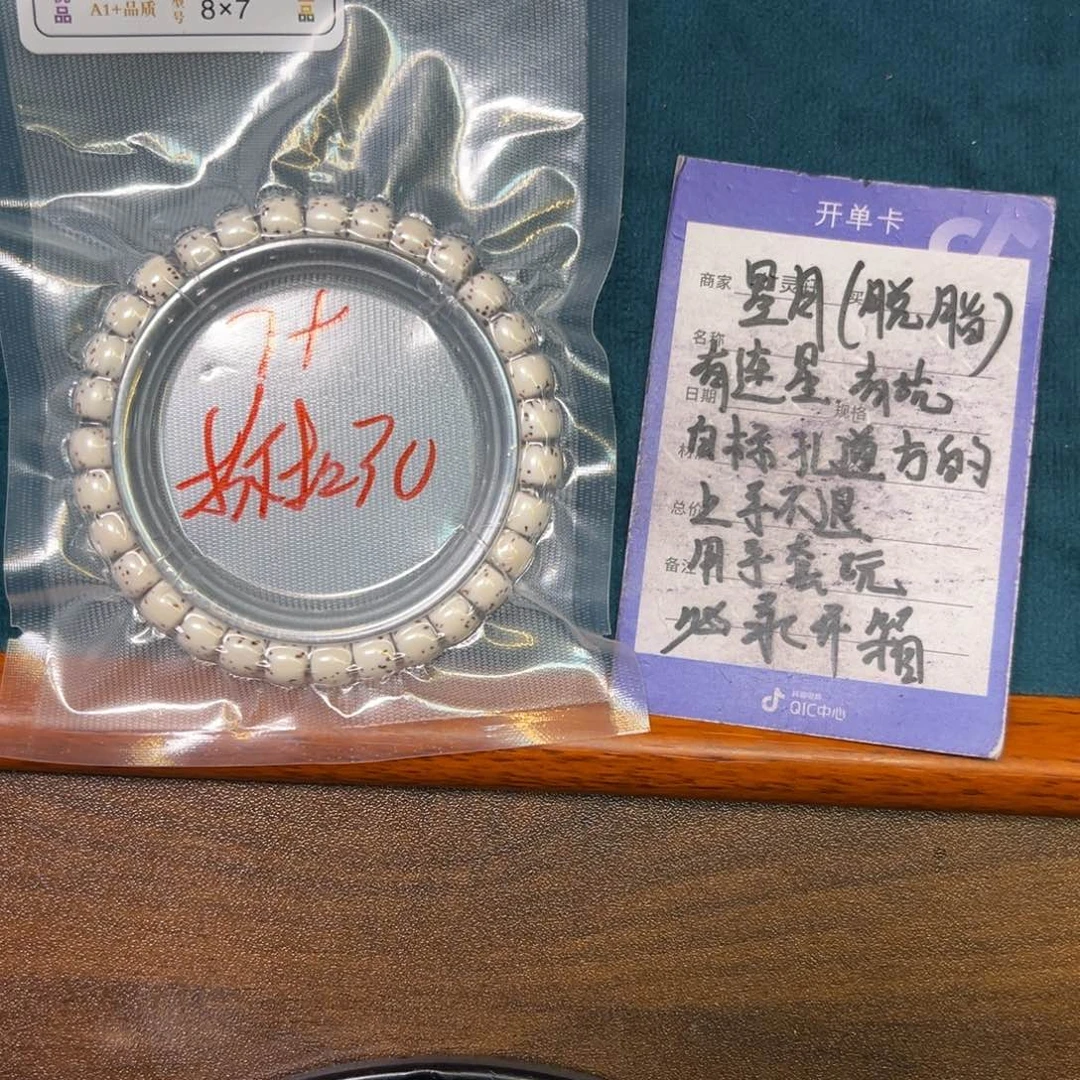 品
A1+品质
型号
8×7
品
7+
30
开单卡
商家 星月(脱脂)
名称
有连星 有坑
日期
规格
白标孔道方的
总价 上手不退
备注 用手套玩
必录开箱
抖音电商
QIC中心